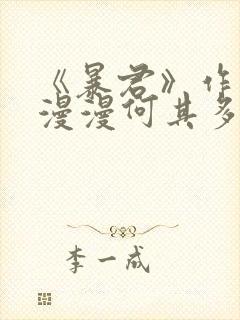 《暴君》作
漫漫何其多
李一成